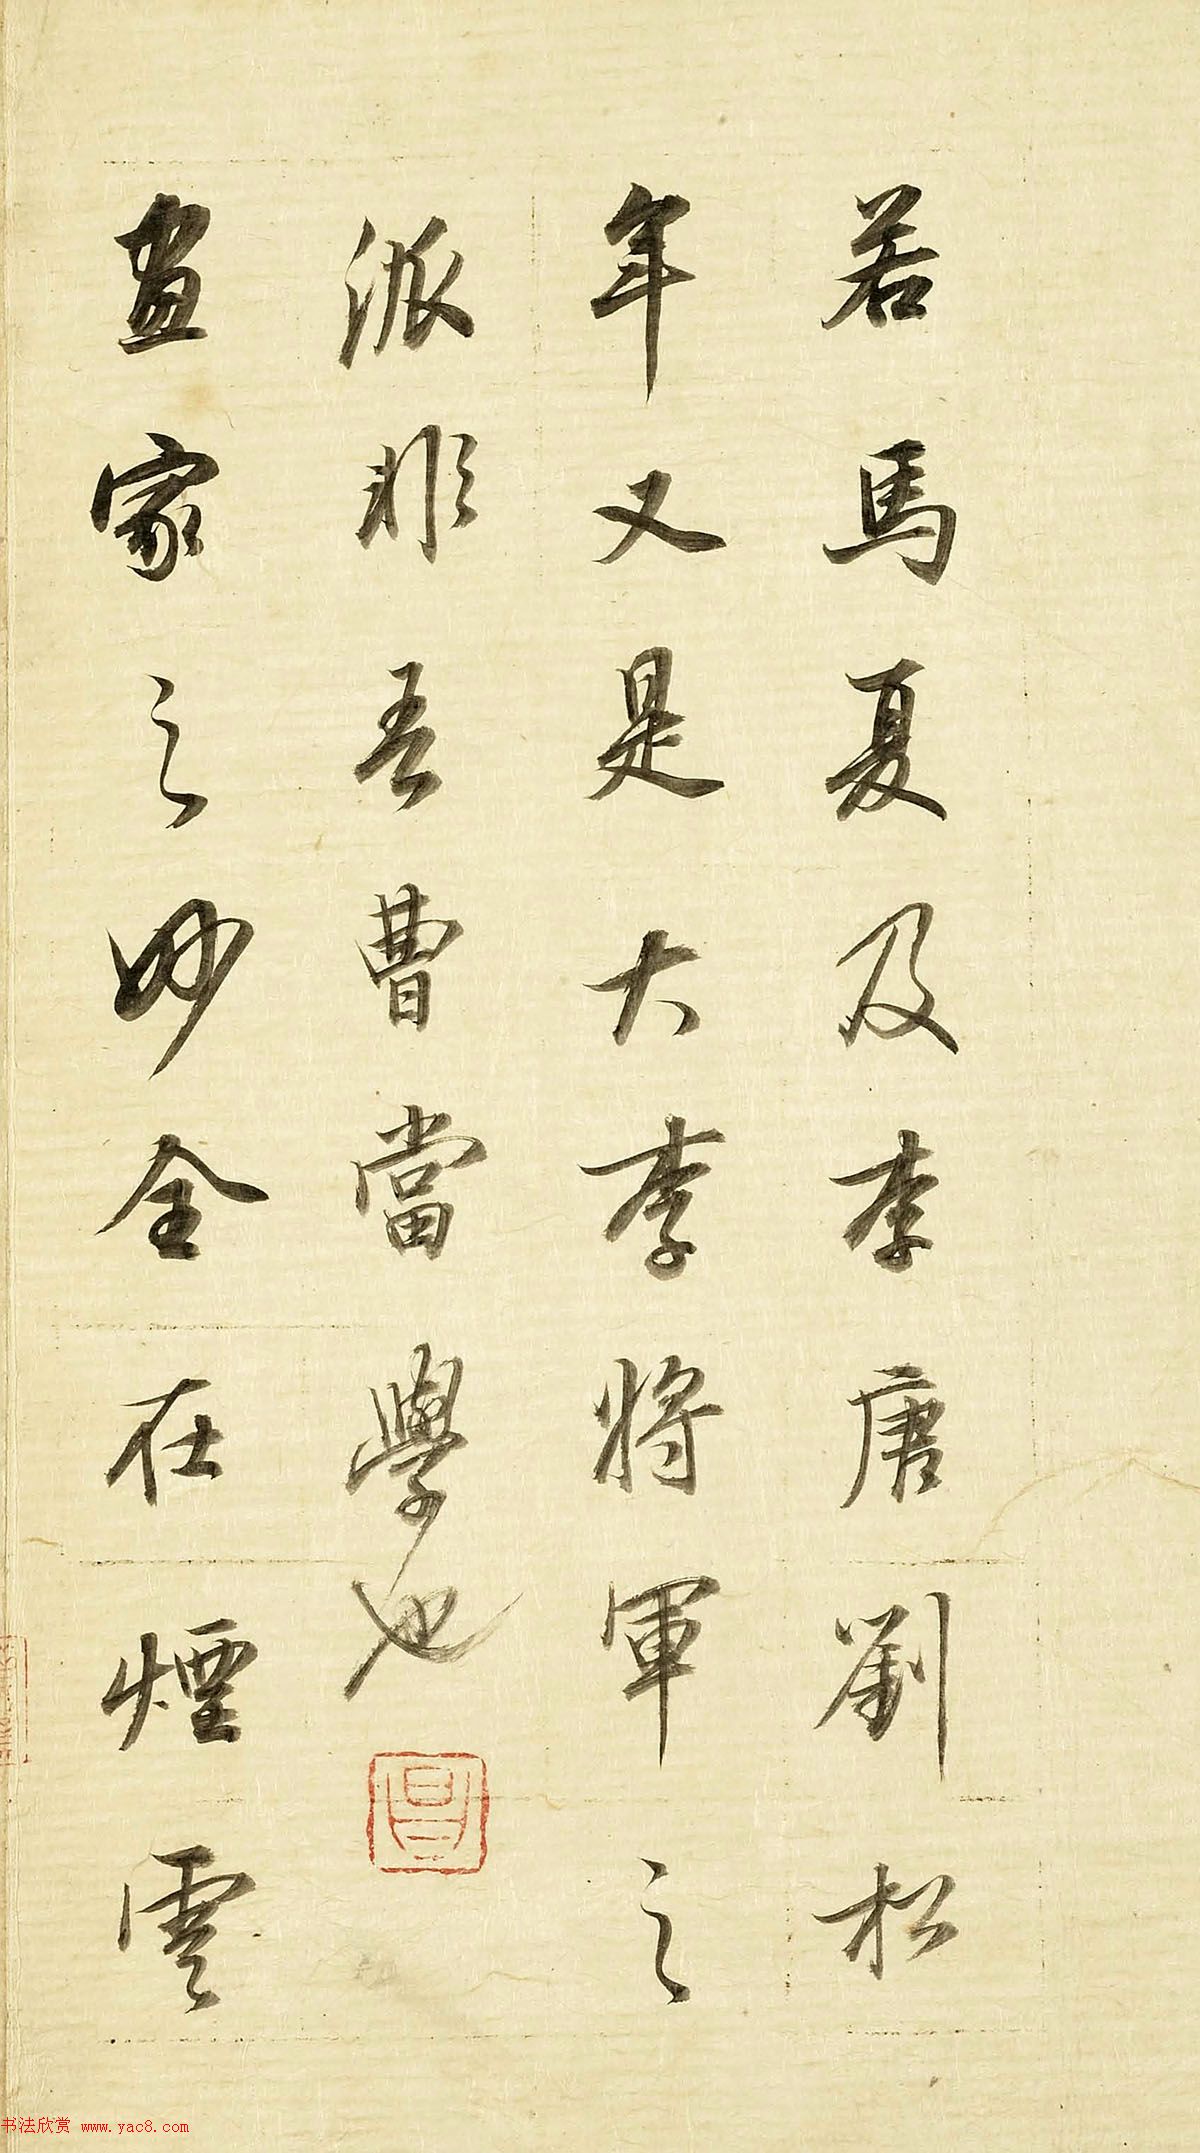 若馬夏及李唐劉松
年又是大李將軍之
派非吾曹當學也
畫家之妙全在煙雲
书法欣赏 www.yac8.com